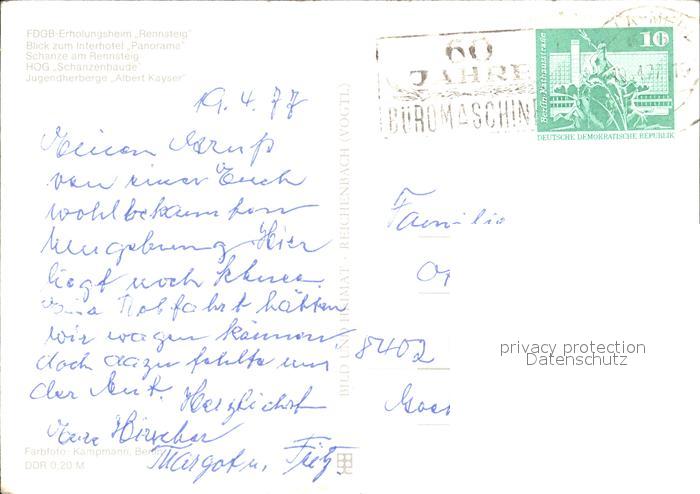 FDGB-Erholungsheim „Rennsteig"
Blick zum Interhotel „Panorama"
Schanze am Rennsteig
HOG „Schanzenbaude"
Jugendherberge „Albert Kayser"
60
JAHRE
BÜROMASCHIN
10
Berlin, Rathausstraße
DEUTSCHE DEMOKRATISCHE REPUBLIK
19.4.77
Einen Gruß
von einer Euch
wohlbekannten
Umgebung. Hier
liegt noch Schnee.
Eine Robfahrt hätten
wir wagen können
doch dazu fehlte uns
der Mut. Herzlichst
Eure
Margot u. Fritz
Familie
8402
BILD UND HEIMAT · REICHENBACH (VOGTL)
Farbfoto: Kampmann, Berlin
DDR 0,20 M
privacy protection
Datenschutz